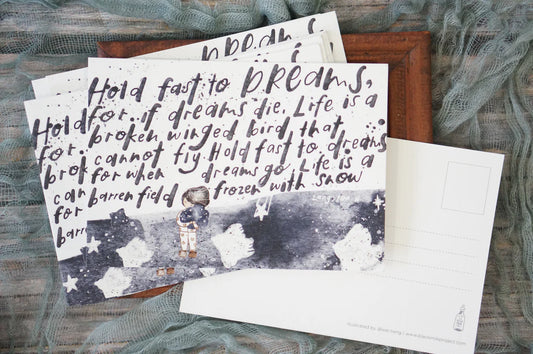 DREAMS,
Hold fast to DREAMS,
for if dreams die, Life is a
broken winged bird that
cannot fly. Hold fast to dreams
for when dreams go. Life is a
barren field frozen with snow
Hold
for
brok
can
for
barr
Illustrated by: www.blackmilkproject.com